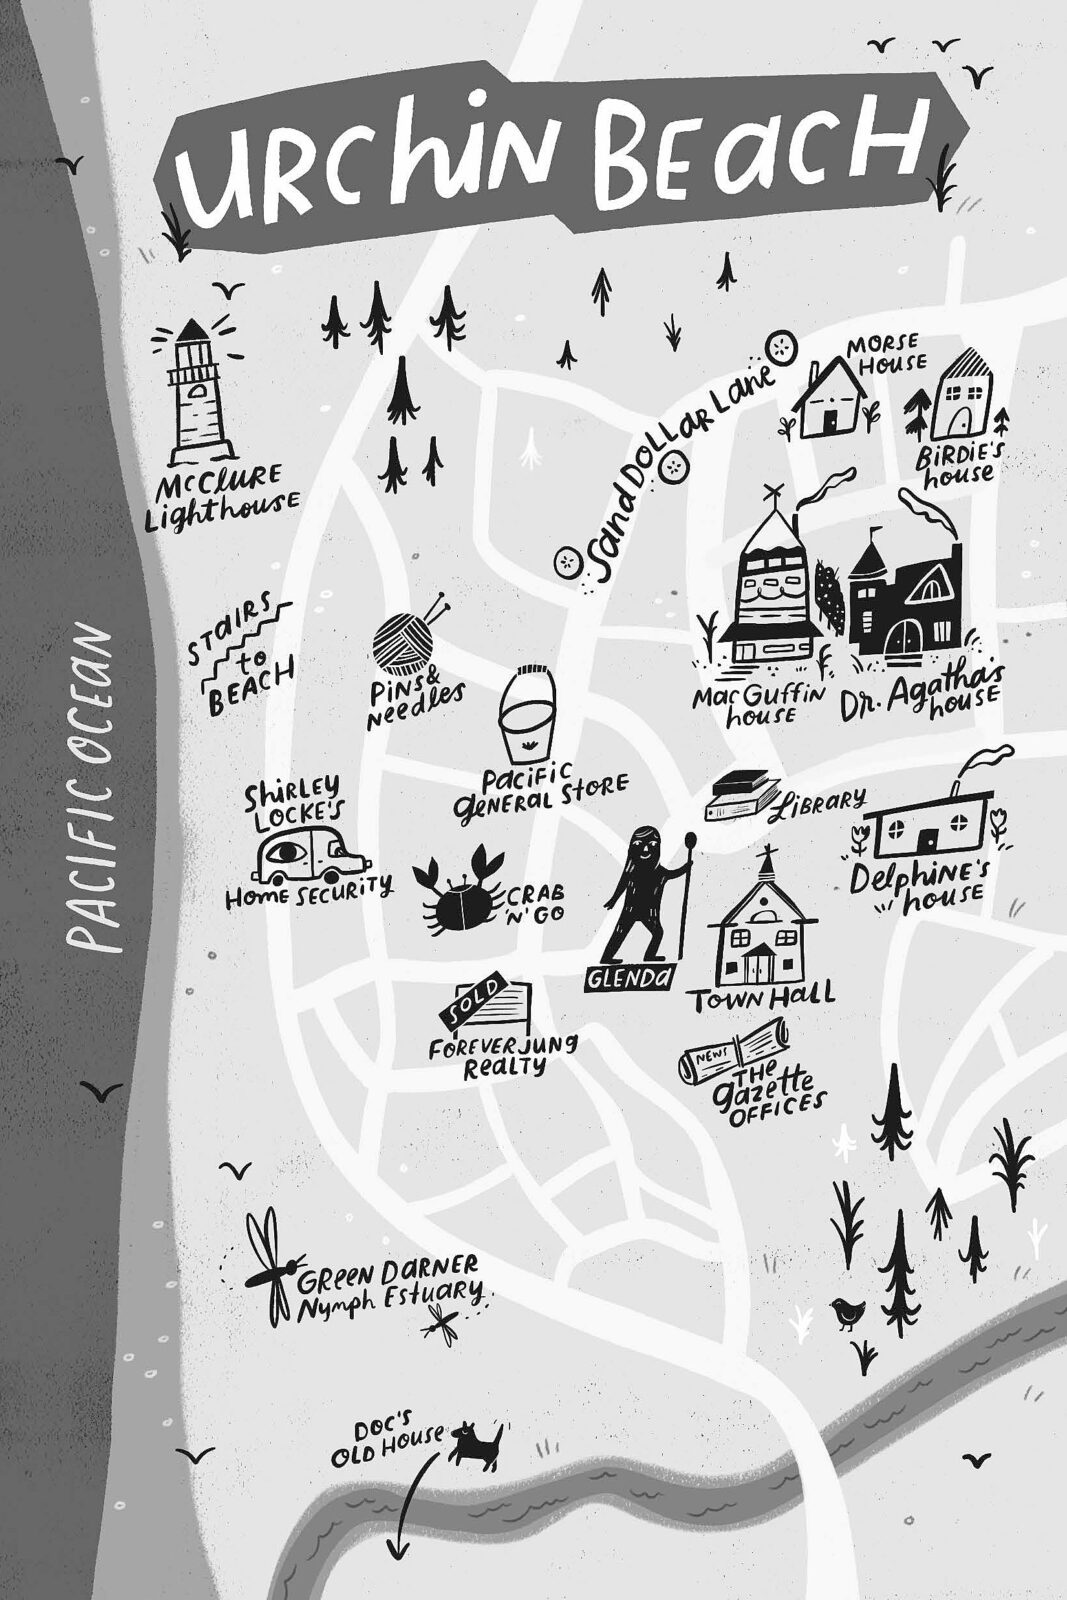 URCHIN BEACH
MORSE
HOUSE
Sand DOLLAR Lane
BIRDIE'S
house
McCLURE
Lighthouse
STAIRS
to
BEACH
PINS &
Needles
MacGuffin
house
Dr. Agatha's
house
PACIFIC OCEAN
PACIFIC
GENERAL STORE
SHIRLEY
LOCKE'S
HOME SECURITY
LIBRARY
Delphine's
house
CRAB
'N' GO
GLENDA
TOWN HALL
SOLD
FOREVER JUNG
REALTY
NEWS
THE
gazette
OFFICES
GREEN DARNER
Nymph Estuary
DOC'S
OLD HOUSE